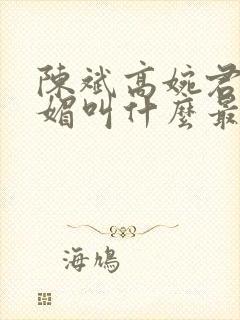 陳斌高婉君
媚叫什麼最
海鳩